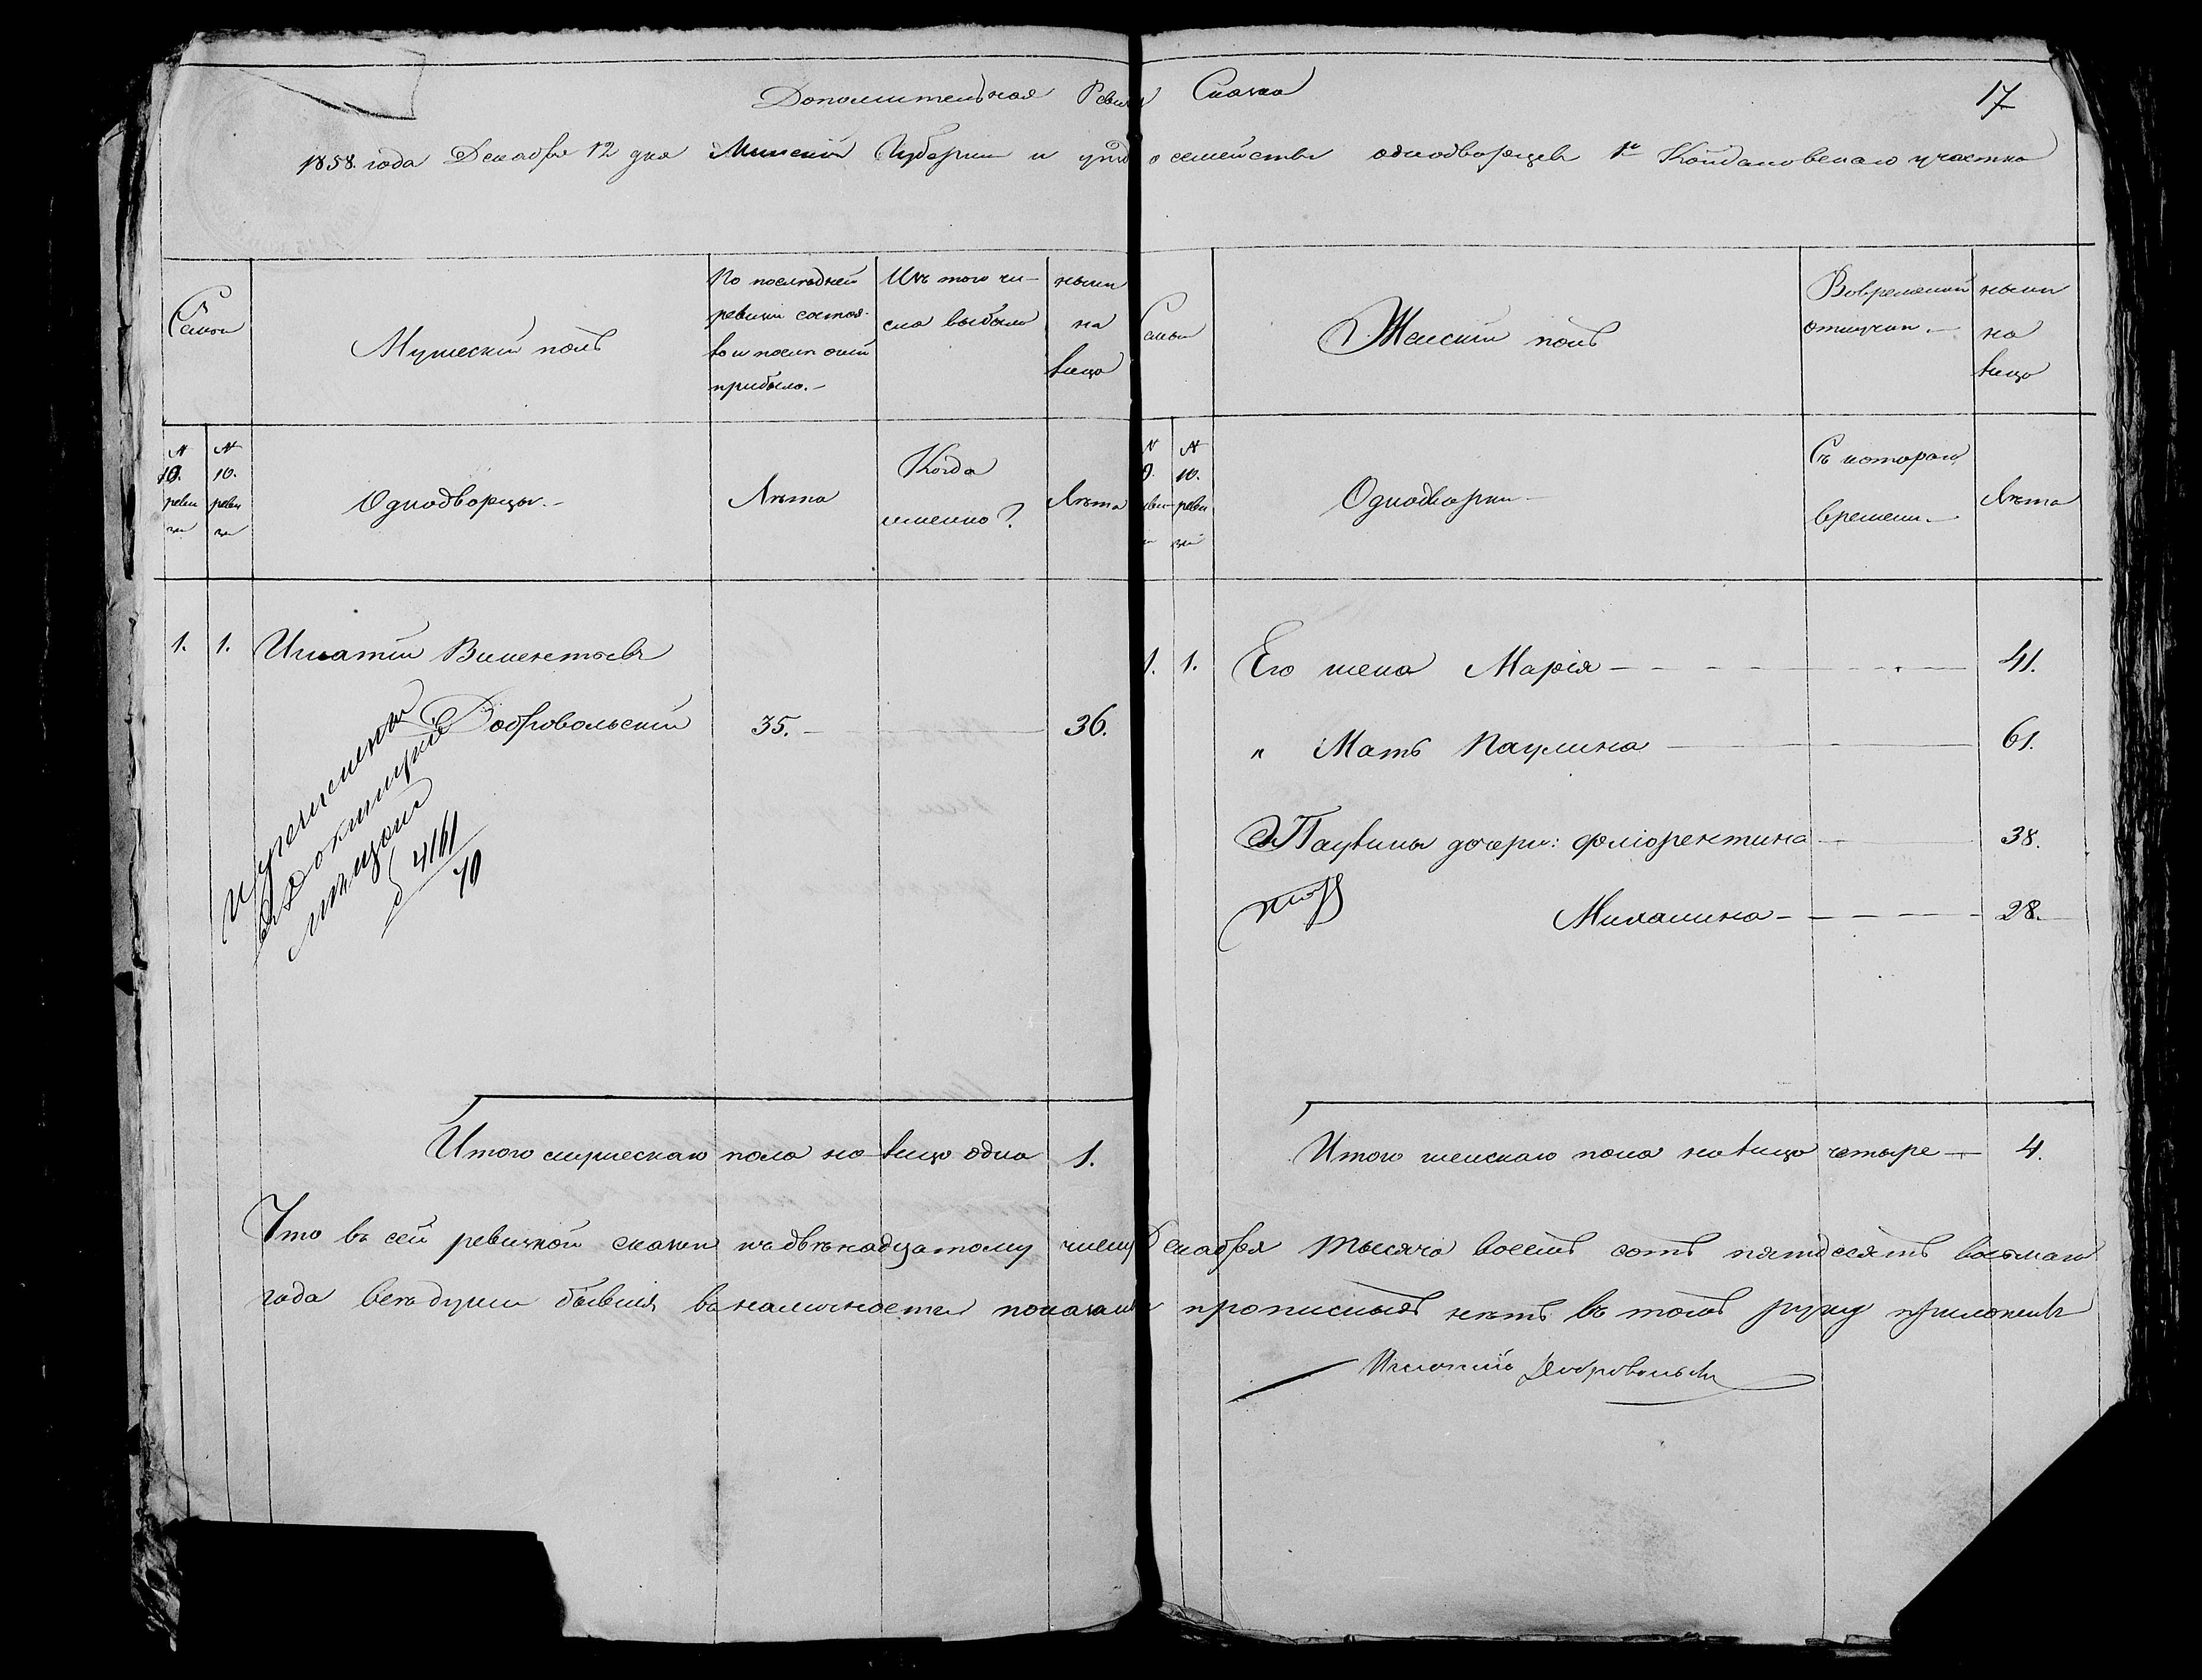 Дополнительная Ревиз Сказка
17
1858 года Декабря 12 дня Минской Губернии и уезда о семействе однодворцев 1го Койдановскаго участка
Семьи
Мужеский пол
По последней
ревизии состоя-
ло и после оной
прибыло.-
Изъ того чи-
сла выбыло
ныне
на
лицо
Семьи
Женский полъ
Во временной
отлучки.-
ныне
на
лицо
№
№
10.
реви
зии
реви
зии
Однодворцы.-
Лета
Когда
именно?
Лета
№
№
10.
реви
зии
Однодворки-
Съ котораго
времени.-
Лета
1. 1. Игнатий Викентьевъ
Добровольский 35. 36.
въ Докшицкие
мещани
4161
70
1. 1. Его жена Марія 41.
" Мать Паулина 61.
Паулины дочери: Фліорентина 38.
Михалина 28.
Итого мужескаго пола на лицо одна 1.
Итого женскаго пола на лицо четыре 4.
Что въ сей ревизкой сказки къ двенадцатому числу Декабря тысяча восемъ сотъ пятдесятъ восьмаго
года все души бывшія въ наличности показаны и прописныхъ нетъ въ томъ руку приложилъ
Игнатій Добровольски